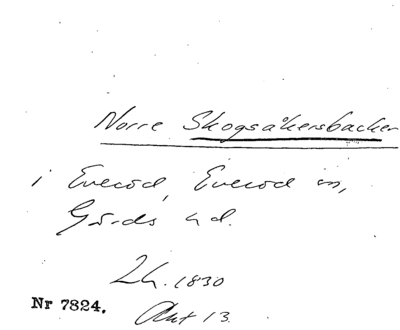 Norre Skogsåkersbacken
i Everöd, Everöd sn,
Gärds hd.
Lh. 1830
Nr 7824. Akt 13.